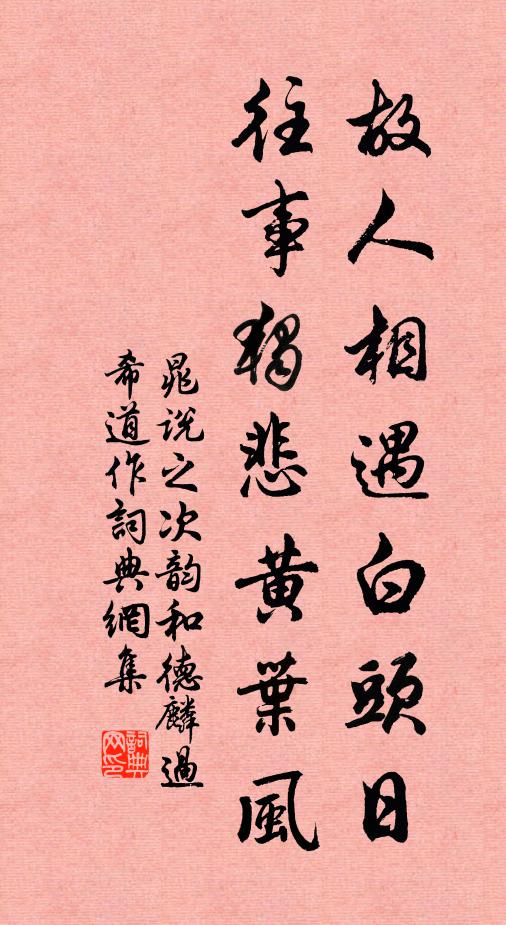 故人相遇白頭日
往事獨悲黃葉風
晁說之次韵和德麟過
希道作詞典網集
詞典
网印